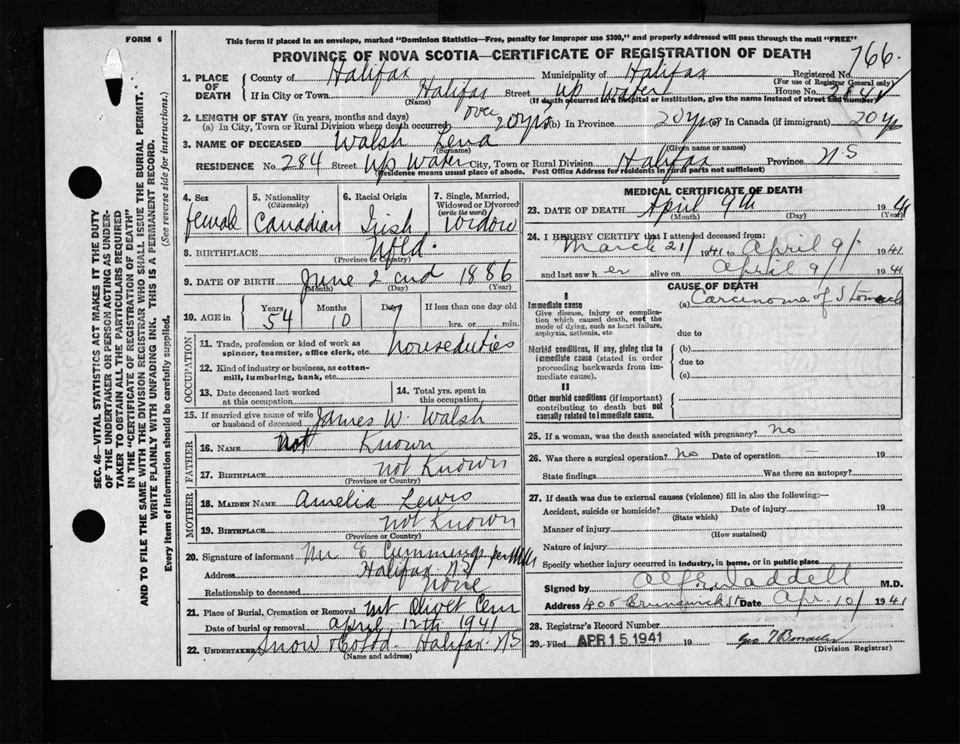 FORM 6
This form if placed in an envelope, marked "Dominion Statistics—Free, penalty for improper use $300," and properly addressed will pass through the mail "FREE"
PROVINCE OF NOVA SCOTIA—CERTIFICATE OF REGISTRATION OF DEATH
766
1. PLACE OF DEATH
County of Halifax Municipality of Halifax Registered No.
(For use of Registrar General only)
If in City or Town Halifax Street up Water House No. 284
(Name) (If death occurred in a hospital or institution, give the name instead of street and number)
2. LENGTH OF STAY (in years, months and days) over
(a) In City, Town or Rural Division where death occurred 20 yrs (b) In Province 20 yrs (c) In Canada (if immigrant) 20 yrs
3. NAME OF DECEASED Walsh Lena
(Surname) (Given name or names)
RESIDENCE No. 284 Street Up Water City, Town or Rural Division Halifax Province N.S
(Residence means usual place of abode. Post Office Address for residents in rural parts not sufficient)
4. Sex
female
5. Nationality
(Citizenship)
Canadian
6. Racial Origin
Irish
7. Single, Married, Widowed or Divorced
(write the word)
Widow
8. BIRTHPLACE Nfld.
(Province or Country)
9. DATE OF BIRTH June 2 cnd 1886
(Month) (Day) (Year)
10. AGE in
Years Months Days If less than one day old
54 10 7 hrs. or min.
OCCUPATION
11. Trade, profession or kind of work as spinner, teamster, office clerk, etc. houseduties
12. Kind of industry or business, as cotton-mill, lumbering, bank, etc.
13. Date deceased last worked at this occupation
14. Total yrs. spent in this occupation
15. If married give name of wife or husband of deceased James W. Walsh
FATHER
16. NAME not Known
17. BIRTHPLACE not Known
(Province or Country)
MOTHER
18. MAIDEN NAME Amelia Lewis
19. BIRTHPLACE not Known
(Province or Country)
20. Signature of informant E Cummings per
Address Halifax NS
Relationship to deceased none
21. Place of Burial, Cremation or Removal Mt Olivet Cem
Date of burial or removal april 12th 1941
22. UNDERTAKER Snow & Co Ltd. Halifax NS
(Name and address)
MEDICAL CERTIFICATE OF DEATH
23. DATE OF DEATH April 9th 1941
(Month) (Day) (Year)
24. I HEREBY CERTIFY that I attended deceased from:
March 21/ 1941 to april 9/ 1941
and last saw h er alive on april 9/ 1941
CAUSE OF DEATH
I
Immediate cause
Give disease, injury or complication which caused death, not the mode of dying, such as heart failure, asphyxia, asthenia, etc.
(a) Carcinoma of Stomach
due to
Morbid conditions, if any, giving rise to immediate cause (stated in order proceeding backwards from immediate cause).
(b)
due to
(c)
II
Other morbid conditions (if important) contributing to death but not causally related to immediate cause.
25. If a woman, was the death associated with pregnancy? no
26. Was there a surgical operation? no Date of operation — 19
State findings Was there an autopsy?
27. If death was due to external causes (violence) fill in also the following:—
Accident, suicide or homicide? Date of injury 19
(State which)
Manner of injury
(How sustained)
Nature of injury
Specify whether injury occurred in industry, in home, or in public place
Signed by Alf E Waddell M.D.
Address 405 Brunswick St Date Apr. 10/ 1941
28. Registrar's Record Number
29. Filed APR 15 1941 19 Geo
(Division Registrar)
SEC. 46—VITAL STATISTICS ACT MAKES IT THE DUTY
OF THE UNDERTAKER OR PERSON ACTING AS UNDER-
TAKER TO OBTAIN ALL THE PARTICULARS REQUIRED
IN THE "CERTIFICATE OF REGISTRATION OF DEATH"
AND TO FILE THE SAME WITH THE DIVISION REGISTRAR WHO SHALL ISSUE THE BURIAL PERMIT.
WRITE PLAINLY WITH UNFADING INK. THIS IS A PERMANENT RECORD.
Every item of information should be carefully supplied. (See reverse side for instructions.)